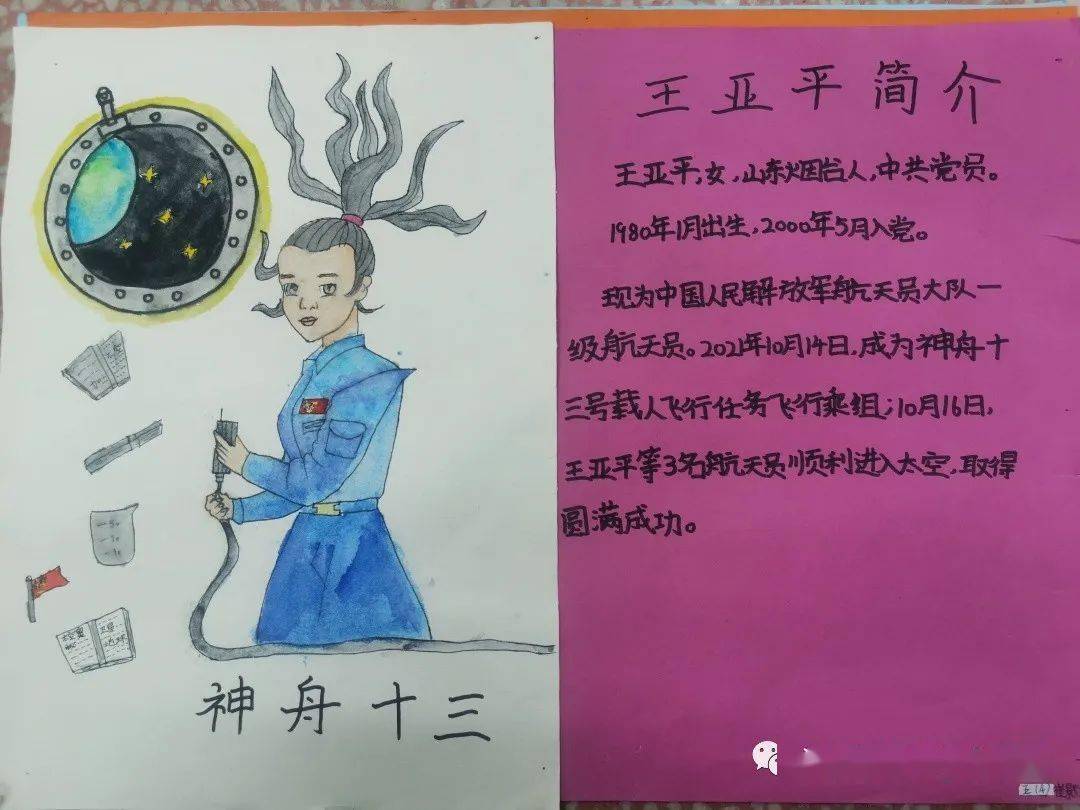 神舟十三
王亚平简介
王亚平,女,山东烟台人,中共党员。
1980年1月出生,2000年5月入党。
现为中国人民解放军航天员大队一
级航天员。2021年10月14日,成为神舟十
三号载人飞行任务飞行乘组;10月16日,
王亚平等3名航天员顺利进入太空,取得
圆满成功。
五(4)